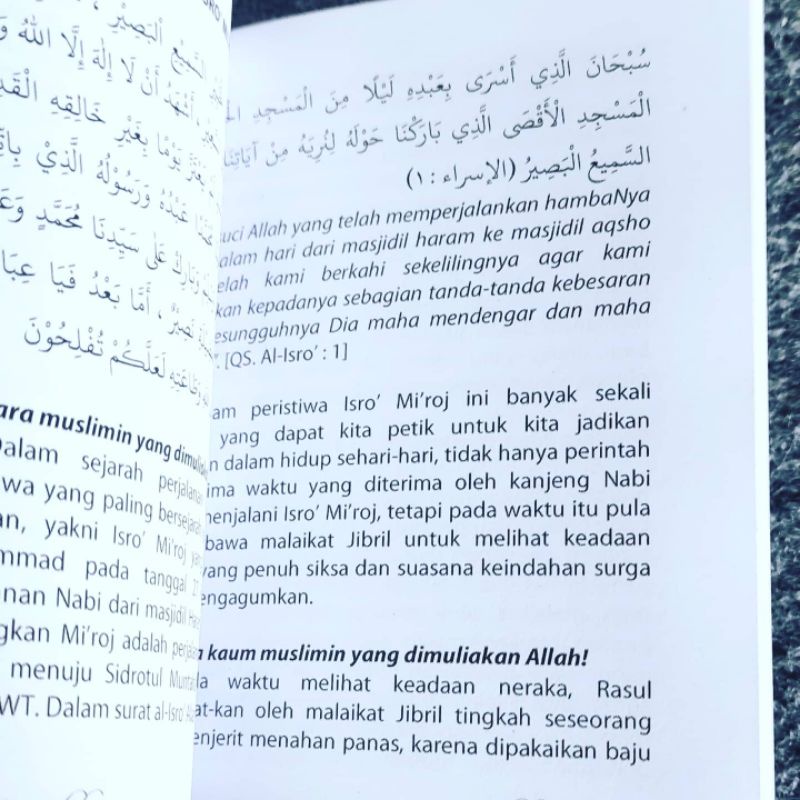 السَّمِيعُ الْبَصِيْرُ ،
أَشْهَدُ أَنْ لَا إِلٰهَ إِلَّا اللهُ
يَوْمًا بِغَيْرِ خَالِقِهِ
عَبْدُهُ وَرَسُوْلُهُ الَّذِيْ
وَبَارِكْ عَلَى سَيِّدِنَا مُحَمَّدٍ
، أَمَّا بَعْدُ فَيَا
لَعَلَّكُمْ تُفْلِحُوْنَ
muslimin yang
alam sejarah
wa yang paling
an, yakni Isro' Mi'roj
mmad pada tanggal
nan Nabi dari masjidil
gkan Mi'roj adalah
menuju Sidrotul
WT. Dalam surat al-Isro'
سُبْحَانَ الَّذِي أَسْرَى بِعَبْدِهِ لَيْلًا مِنَ الْمَسْجِدِ
الْمَسْجِدِ الْأَقْصَى الَّذِي بَارَكْنَا حَوْلَهُ لِنُرِيَهُ مِنْ آيَاتِنَا
السَّمِيعُ الْبَصِيرُ (الإسراء : ١)
uci Allah yang telah memperjalankan hambaNya
alam hari dari masjidil haram ke masjidil aqsho
elah kami berkahi sekelilingnya agar kami
kan kepadanya sebagian tanda-tanda kebesaran
esungguhnya Dia maha mendengar dan maha
". [QS. Al-Isro' : 1]
am peristiwa Isro' Mi'roj ini banyak sekali
yang dapat kita petik untuk kita jadikan
n dalam hidup sehari-hari, tidak hanya perintah
ima waktu yang diterima oleh kanjeng Nabi
menjalani Isro' Mi'roj, tetapi pada waktu itu pula
bawa malaikat Jibril untuk melihat keadaan
yang penuh siksa dan suasana keindahan surga
engagumkan.
a kaum muslimin yang dimuliakan Allah!
la waktu melihat keadaan neraka, Rasul
at-kan oleh malaikat Jibril tingkah seseorang
enjerit menahan panas, karena dipakaikan baju